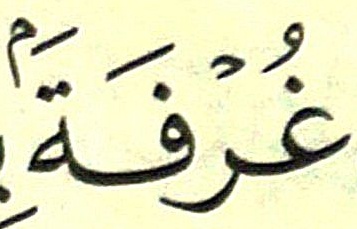 غُرْفَةَۢ